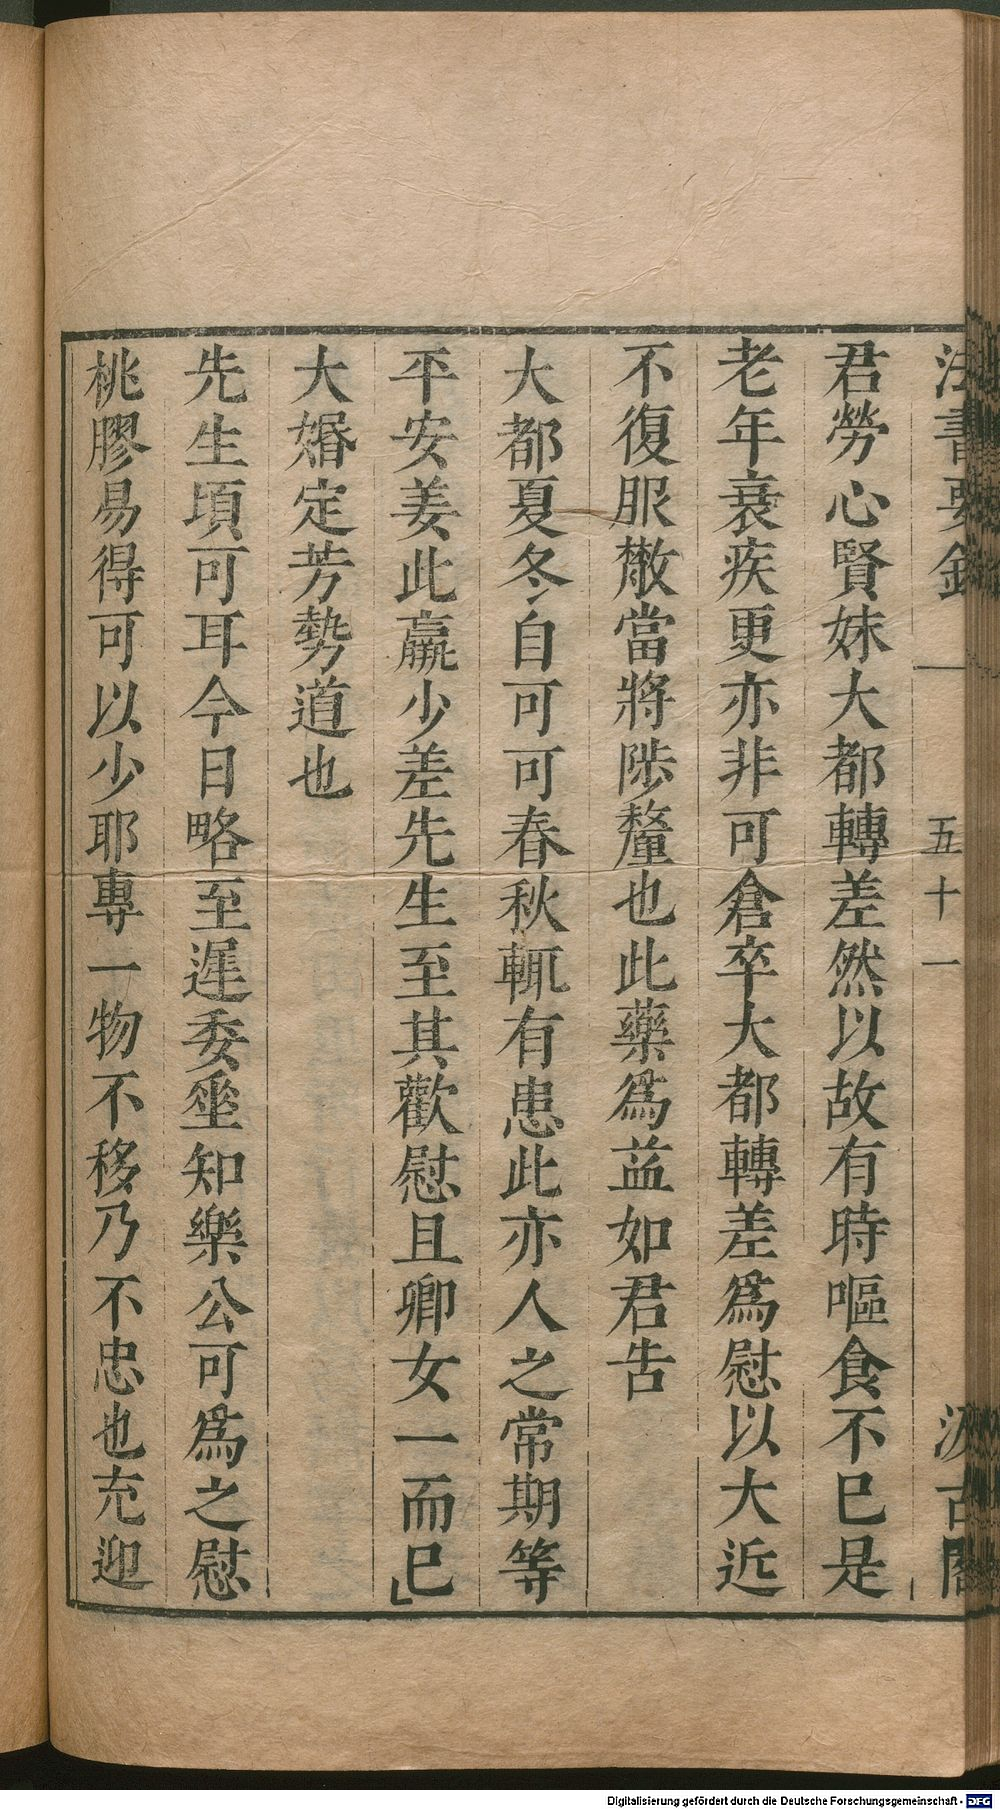 法書要錄 一 五十一 汲古閣
君勞心賢妹大都轉差然以故有時嘔食不已是
老年衰疾更亦非可倉卒大都轉差爲慰以大近
不復服散當將陟釐也此藥爲益如君告
大都夏冬自可可春秋輒有患此亦人之常期等
平安姜此羸少差先生至其歡慰且卿女一而已
大婚定芳勢道也
先生頃可耳今日略至遲委坐知樂公可爲之慰
桃膠易得可以少耶專一物不移乃不忠也充迎
Digitalisierung gefördert durch die Deutsche Forschungsgemeinschaft - DFG